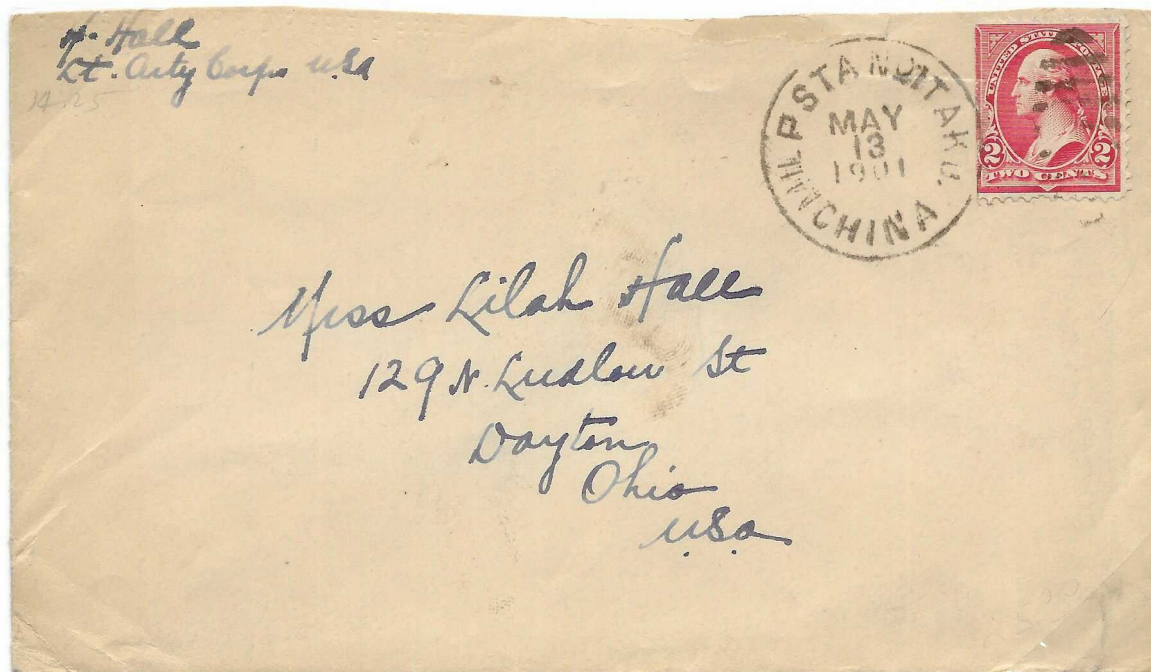 H. Hall
Lt. Arty Corps USA
14.25
MIL. P. STA. NO. 1 TAKU.
MAY
13
1901
CHINA
UNITED STATES POSTAGE
2 2
TWO CENTS
Miss Lilah Hall
129 N. Ludlow St
Dayton
Ohio
U.S.a.